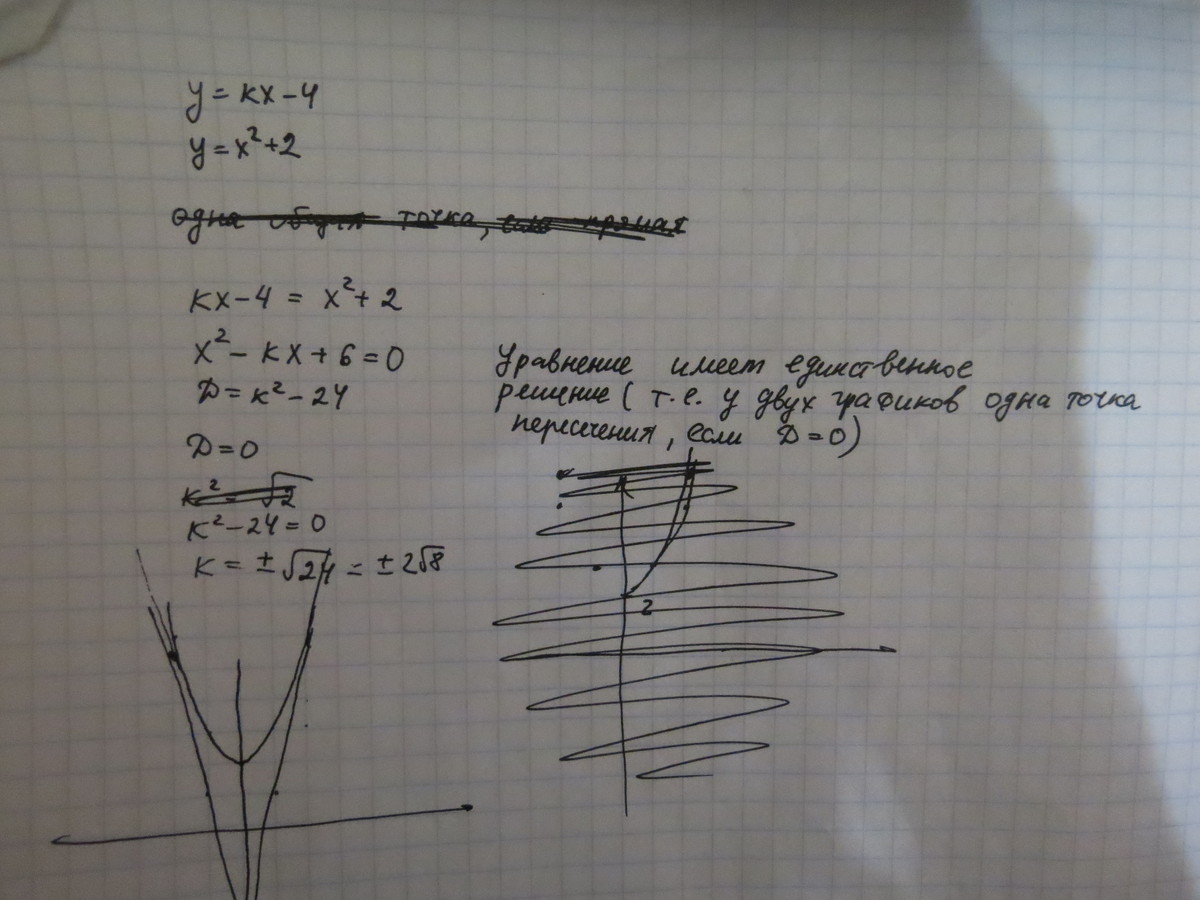 y = kx - 4
y = x² + 2
одна общая точка, если прямая
kx - 4 = x² + 2
x² - kx + 6 = 0
D = k² - 24
D = 0
k² = √2
k² - 24 = 0
k = ±√24 = ±2√8
Уравнение имеет единственное
решение (т.е. у двух графиков одна точка
пересечения, если D = 0)
2